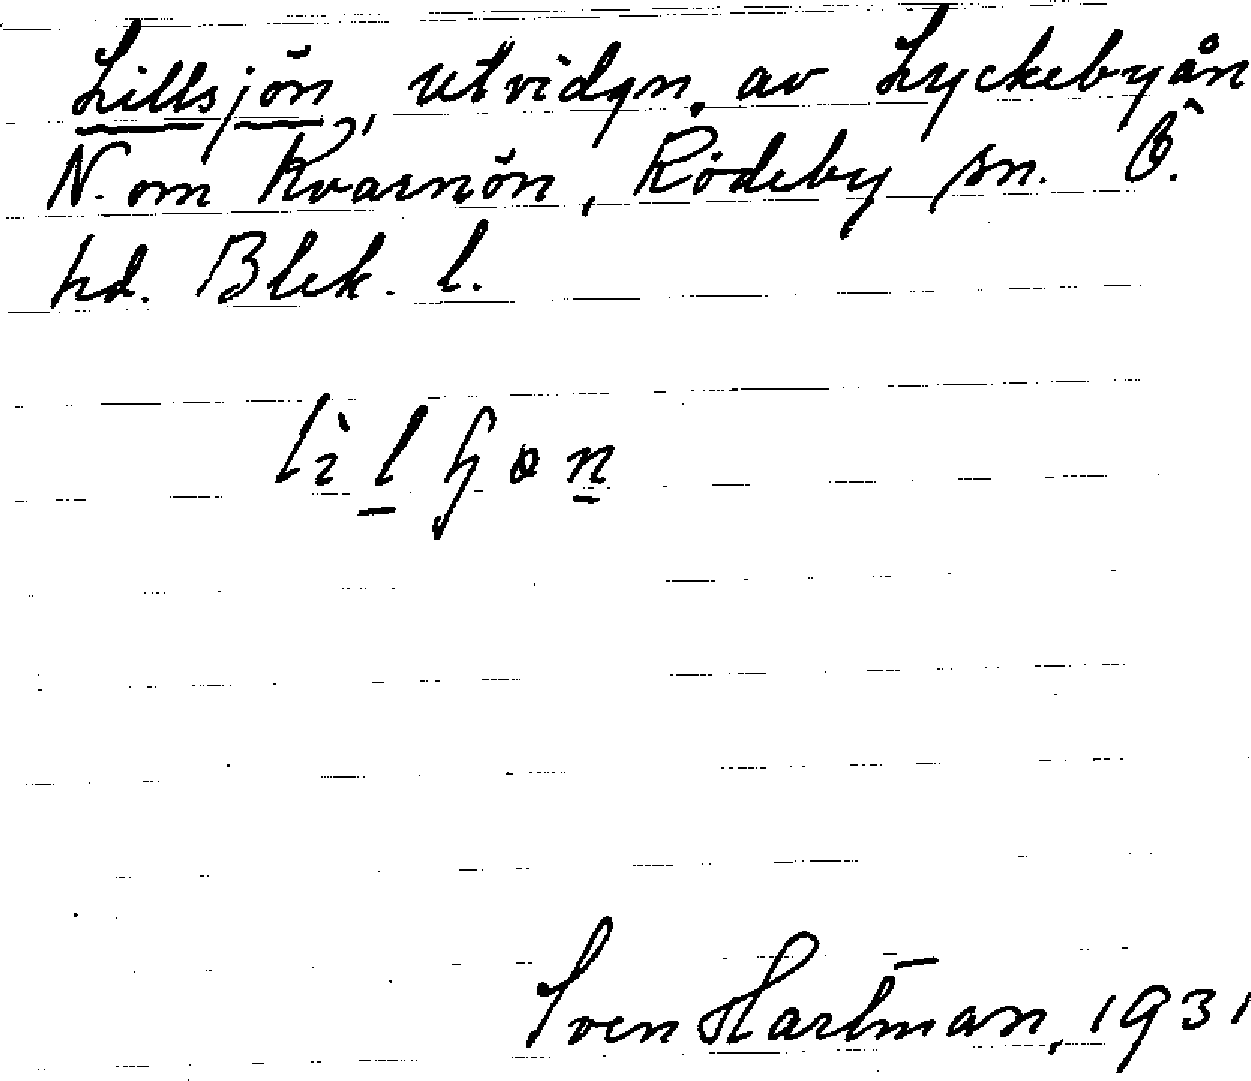 Lillsjön, utvidgn. av Lyckebyån
N. om Kvarnön, Rödeby sn. Ö.
hd. Blek. l.
Sven Hartman, 1931